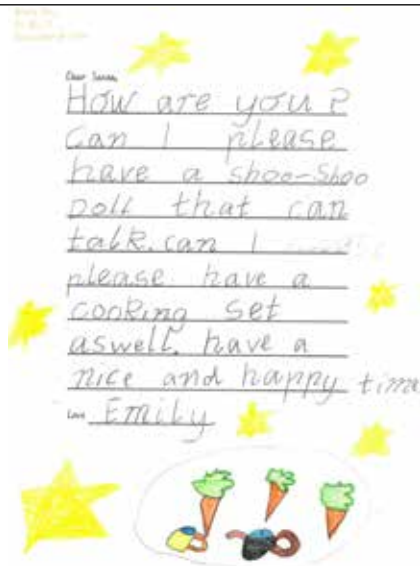 Dear Santa,
How are you?
can I please
have a shoo-shoo
Doll that can
talk. can I
please have a
cooking set
aswell. have a
nice and happy time
Love Emily